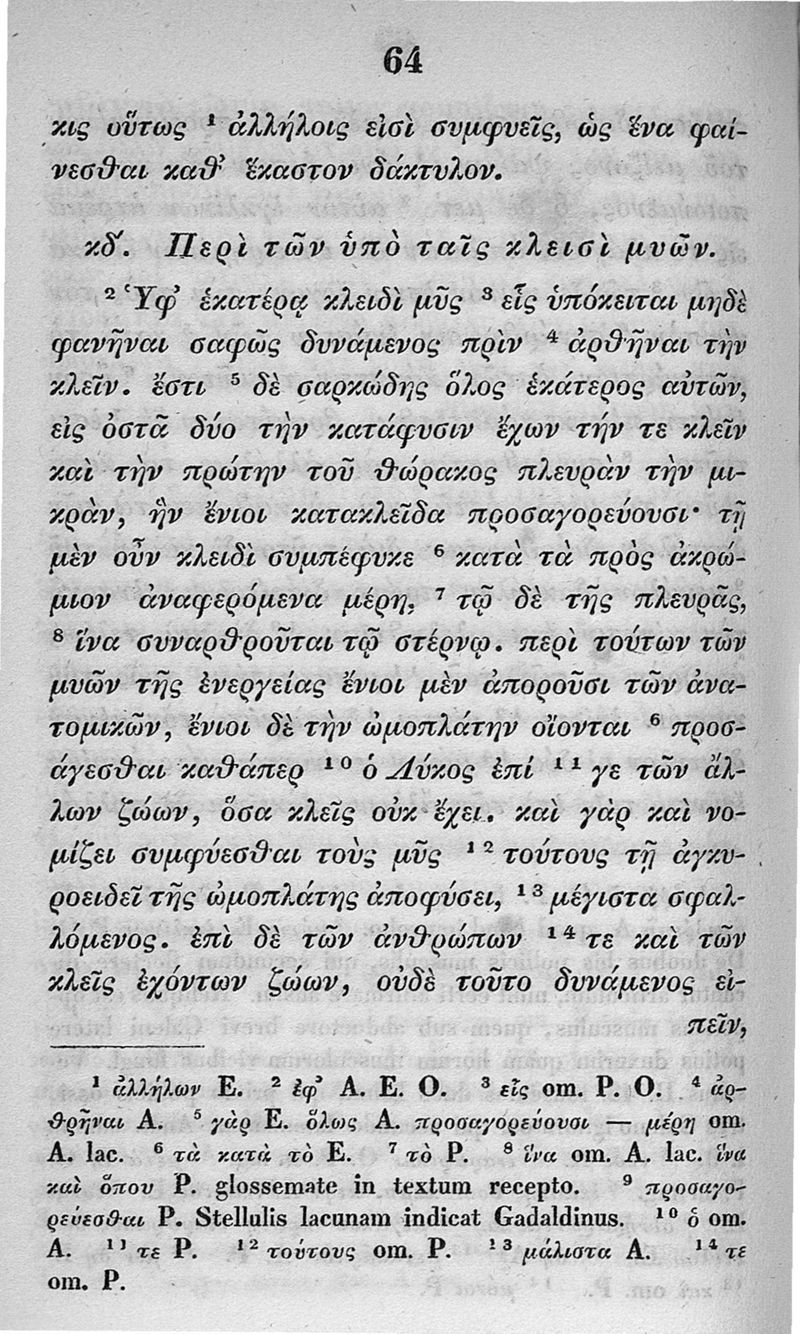 64
κις οὕτως ¹ ἀλλήλοις εἰσὶ συμφυεῖς, ὡς ἕνα φαί-
νεσθαι καθ’ ἕκαστον δάκτυλον.
κδ΄. Περὶ τῶν ὑπὸ ταῖς κλεισὶ μυῶν.
² Ὑφ’ ἑκατέρᾳ κλειδὶ μῦς ³ εἷς ὑπόκειται μηδὲ
φανῆναι σαφῶς δυνάμενος πρὶν ⁴ ἀρθῆναι τὴν
κλεῖν. ἔστι ⁵ δὲ σαρκώδης ὅλος ἑκάτερος αὐτῶν,
εἰς ὀστᾶ δύο τὴν κατάφυσιν ἔχων τήν τε κλεῖν
καὶ τὴν πρώτην τοῦ θώρακος πλευρὰν τὴν μι-
κρὰν, ἣν ἔνιοι κατακλεῖδα προσαγορεύουσι· τῇ
μὲν οὖν κλειδὶ συμπέφυκε ⁶ κατὰ τὰ πρὸς ἀκρώ-
μιον ἀναφερόμενα μέρη, ⁷ τῷ δὲ τῆς πλευρᾶς,
⁸ ἵνα συναρθροῦται τῷ στέρνῳ. περὶ τούτων τῶν
μυῶν τῆς ἐνεργείας ἔνιοι μὲν ἀποροῦσι τῶν ἀνα-
τομικῶν, ἔνιοι δὲ τὴν ὠμοπλάτην οἴονται ⁶ προσ-
άγεσθαι καθάπερ ¹⁰ ὁ Λύκος ἐπί ¹¹ γε τῶν ἄλ-
λων ζώων, ὅσα κλεῖς οὐκ ἔχει. καὶ γὰρ καὶ νο-
μίζει συμφύεσθαι τοὺς μῦς ¹² τούτους τῇ ἀγκυ-
ροειδεῖ τῆς ὠμοπλάτης ἀποφύσει, ¹³ μέγιστα σφαλ-
λόμενος. ἐπὶ δὲ τῶν ἀνθρώπων ¹⁴ τε καὶ τῶν
κλεῖς ἐχόντων ζώων, οὐδὲ τοῦτο δυνάμενος εἰ-
πεῖν,
¹ ἀλλήλων E. ² ἐφ’ A. E. O. ³ εἷς om. P. O. ⁴ ἀρ-
θρῆναι A. ⁵ γὰρ E. ὅλως A. προσαγορεύουσι — μέρη om.
A. lac. ⁶ τὰ κατὰ τὸ E. ⁷ τὸ P. ⁸ ἵνα om. A. lac. ἵνα
καὶ ὅπου P. glossemate in textum recepto. ⁹ προσαγο-
ρεύεσθαι P. Stellulis lacunam indicat Gadaldinus. ¹⁰ ὁ om.
A. ¹¹ τε P. ¹² τούτους om. P. ¹³ μάλιστα A. ¹⁴ τε
om. P.